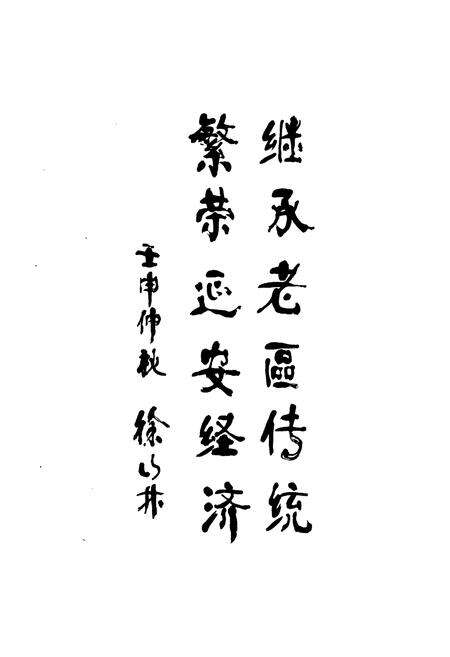 继承老區传统
繁荣延安经济
壬申仲秋 徐山林